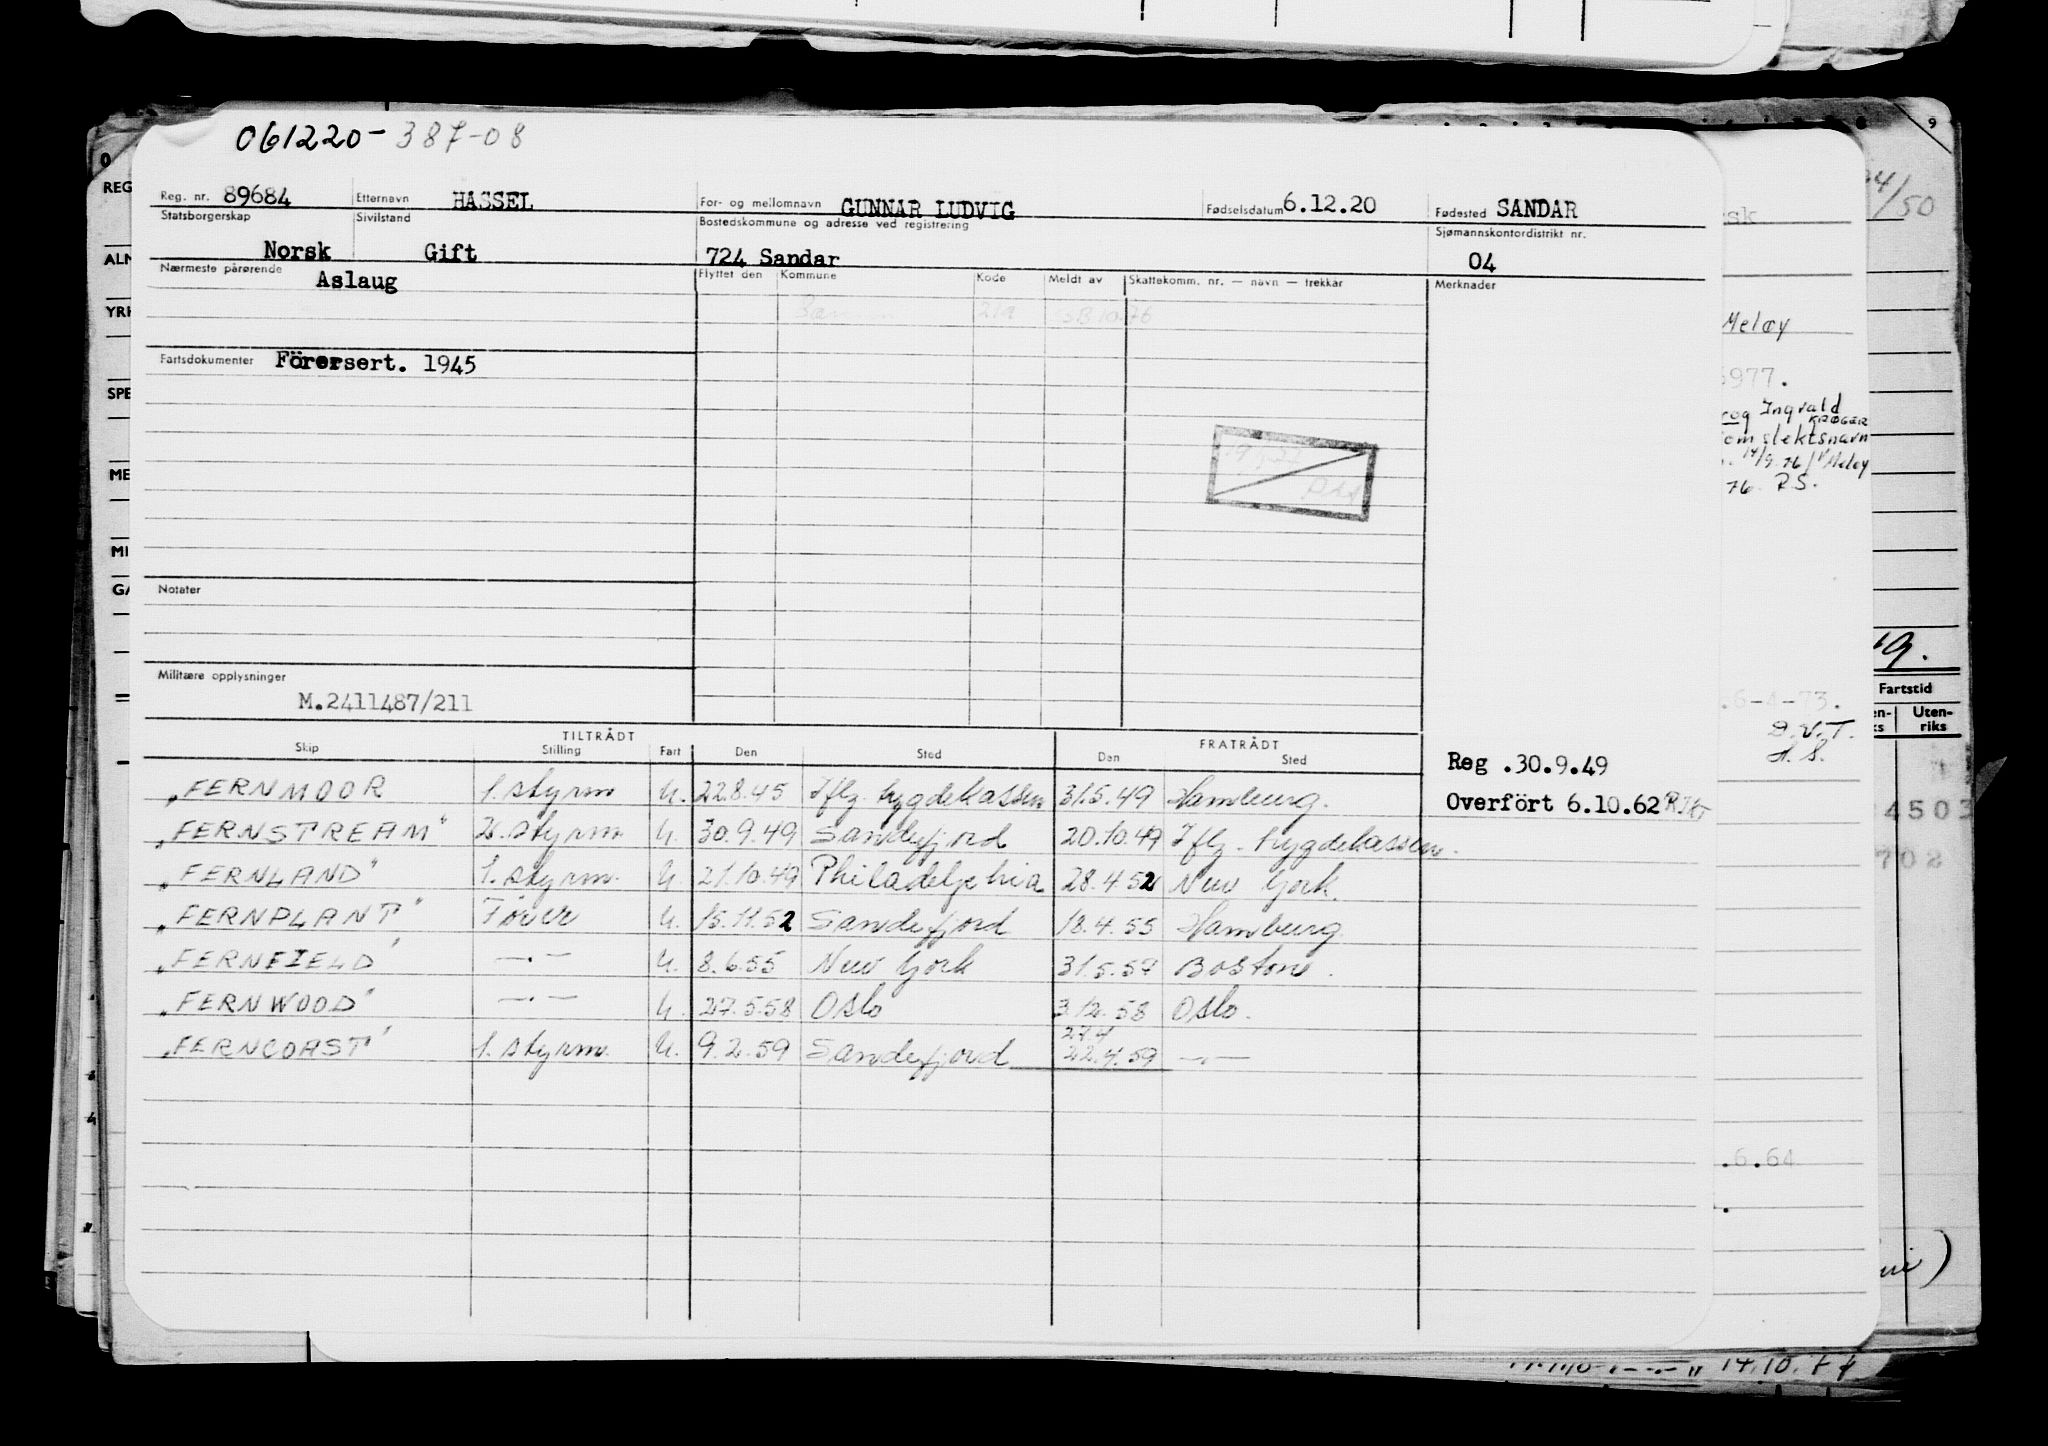 061220-387-08
Reg. nr. 89684 Etternavn HASSEL For- og mellomnavn GUNNAR LUDVIG Fødselsdatum 6.12.20 Fødested SANDAR
Statsborgerskap Sivilstand Bostedskommune og adresse ved registrering Sjømannskontordistrikt nr.
Norsk Gift 724 Sandar 04
Nærmeste pårørende Aslaug Flyttet den Kommune Kode Meldt av Skattekomm. nr. — navn — trekkår Merknader
Fartsdokumenter Förersert. 1945
Notater
Militære opplysninger
M.2411487/211
TILTRÅDT FRATRÅDT
Skip Stilling Fart Den Sted Den Sted
Reg .30.9.49
Overfört 6.10.62
"FERNMOOR 1. styrm U. 22.8.45 Iflg. trygdekassen 31.5.49 Hamburg.
"FERNSTREAM" 2. styrm U. 30.9.49 Sandefjord 20.10.49 Iflg. trygdekassen.
"FERNLAND" 1. styrm. U. 21.10.49 Philadelphia 28.4.52 New York.
"FERNPLANT" Fører U. 15.11.52 Sandefjord 18.4.55 Hamburg
"FERNFIELD" —.— U. 8.6.55 New York 31.5.57 Boston.
"FERNWOOD" —.— U. 27.5.58 Oslo 3.12.58 Oslo.
27.4
"FERNCOAST" 1. styrm. U. 9.2.59 Sandefjord 22.4.59 —.—
REG
ALM
YRK
SPE
ME
MI
GA
/50
sk
Meløy
6977.
og Ingvald
KRØGER
om slektsnavn
14/9.76/ Meløy
76. R.S.
19.
Fartstid
Uten-
riks
6-4-73.
D.V.T.
H.S.
4503
702
.6.64
14.10.74